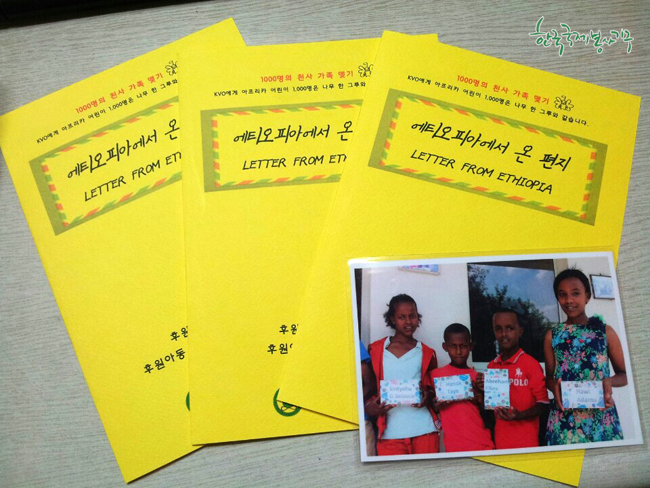 한국국제봉사기구
1000명의 천사 가족 맺기
KVO에게 아프리카 어린이 1,000명은 나무 한 그루와
에티오피아에서 온
LETTER FROM ETH
후원
후원아동
1000명의 천사 가족 맺기
KVO에게 아프리카 어린이 1,000명은 나무 한 그루와
에티오피아에서 온
LETTER FROM ETHI
후
후원아
1000명의 천사 가족 맺기
KVO에게 아프리카 어린이 1,000명은 나무 한 그루와 같습니다.
에티오피아에서 온 편지
LETTER FROM ETHIOPIA
POLO